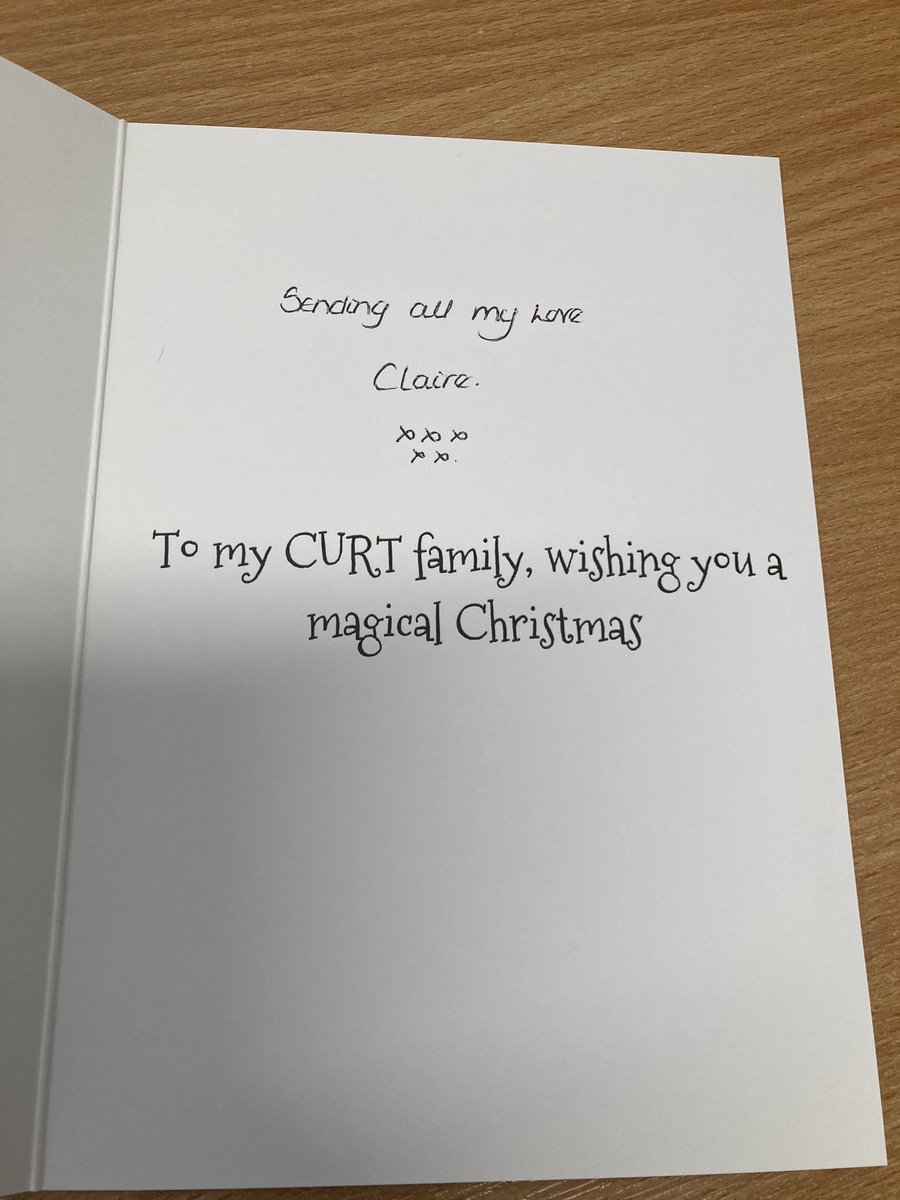 Sending all my love
Claire.
xxx
xx.
To my CURT family, wishing you a
magical Christmas